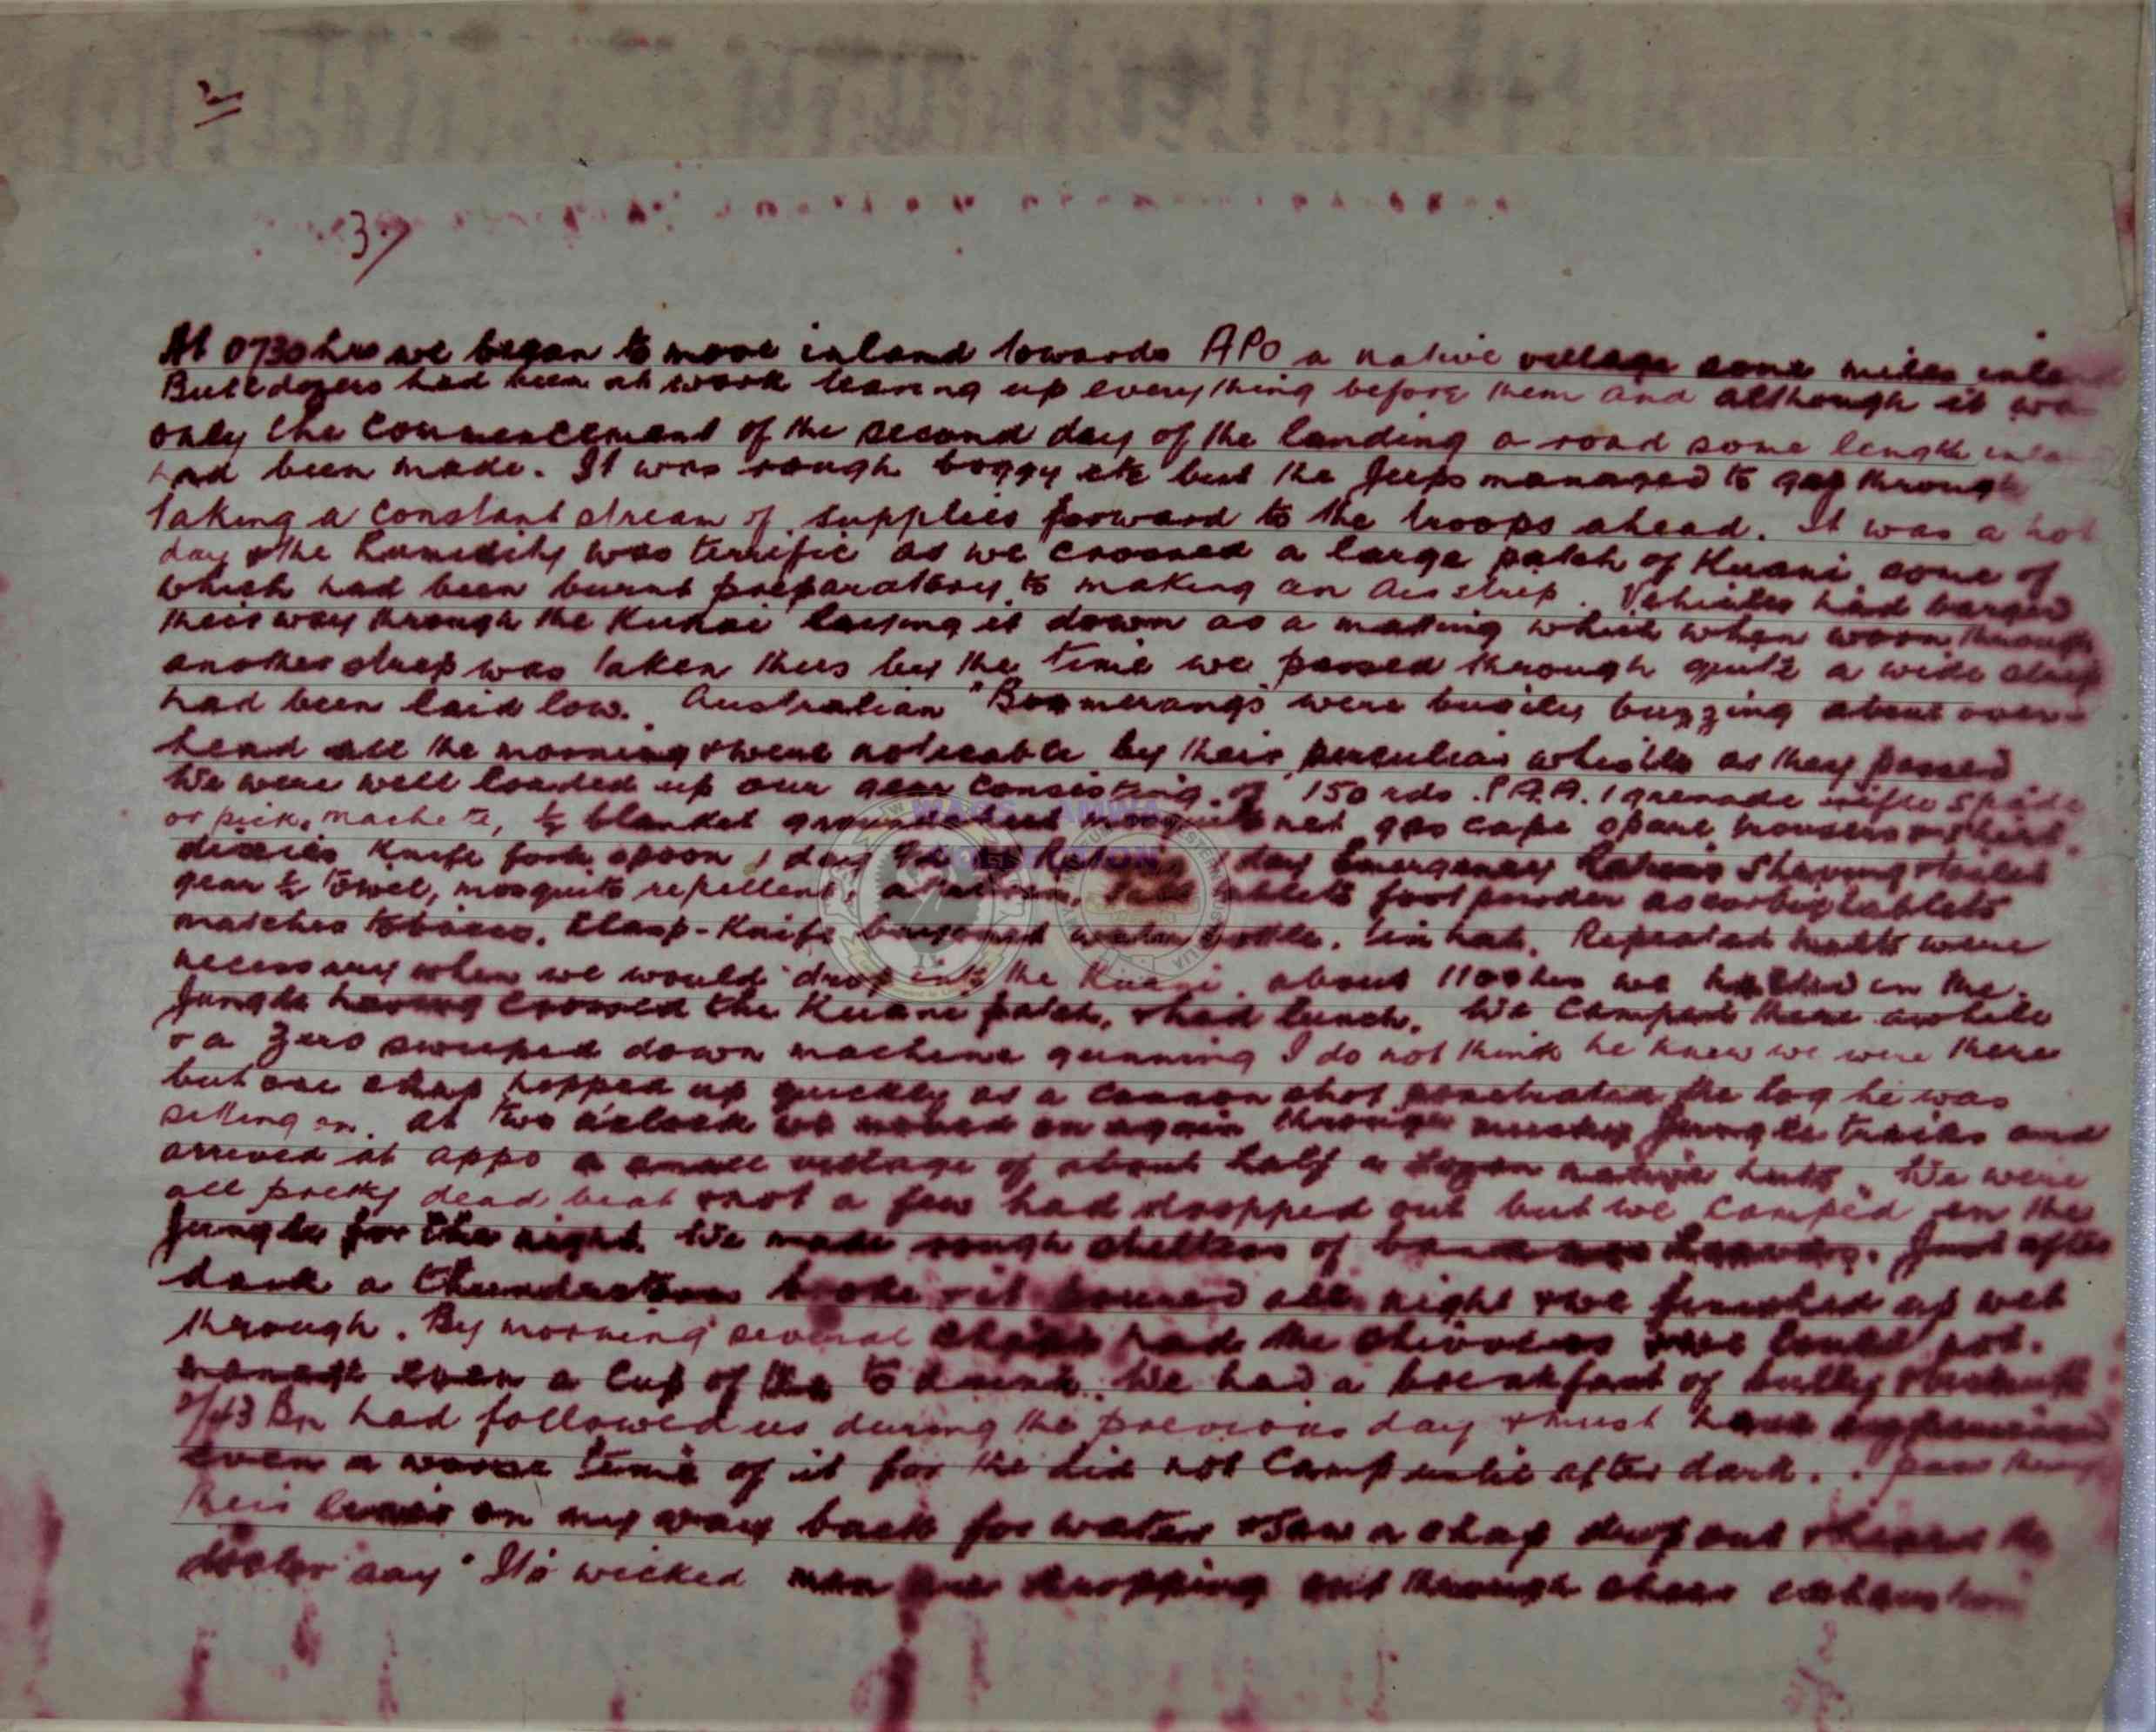 2
3.
At 0730 hrs we began to move inland towards APO a native village some miles inland
Bulldozers had been at work tearing up everything before them and although it was
only the commencement of the second day of the landing a road some length inland
had been made. It was rough boggy etc but the Jeeps managed to get through
taking a constant stream of supplies forward to the troops ahead. It was a hot
day & the humidity was terrific as we crossed a large patch of Kuani some of
which had been burnt preparatory to making an Air strip. Vehicles had barged
their way through the Kunai laying it down as a matting which when worn through
another strip was taken thus by the time we passed through quite a wide strip
had been laid low. Australian "Boomerangs were busily buzzing about over-
head all the morning & were noticeable by their peculiar whistle as they passed
We were well loaded up our gear consisting of 150 rds S.A.A. 1 grenade rifle spade
or pick, machete, ½ blanket groundsheet mosquito net gas cape spare trousers & shirt.
dixies Knife fork spoon 1 day 1 day Emergency Rations Shaving & toilet
gear ½ towel, mosquito repellent, atabrin, salt tablets foot powder ascorbic tablets
matches tobacco, Clasp-Knife bayonet water bottle, tin hat. Repeated halts were
necessary when we would drop into the Kuani. about 1100 hrs we halted in the
Jungle having crossed the Kuani patch, & had lunch. We camped there awhile
& a Zero sweeped down machine gunning I do not think he knew we were there
but one chap hopped up quickly as a cannon shot penetrated the log he was
sitting on. At two o'clock we moved on again through Jungle tracks and
arrived at Appo a small village of about half a dozen native huts. We were
all pretty dead beat & not a few had dropped out but we camped in the
Jungle for the night. We made rough shelters of leaves. Just after
dark a thunderstorm broke & it poured all night & we finished up wet
through. By morning several chaps had the shivers & we could not
manage even a cup of tea to drink. We had a breakfast of bully & biscuits
2/43 Bn had followed us during the previous day & must have experienced
even a worse time of it for the did not camp until after dark. pass through
their lines on my way back for water & saw a chap drop out & heard the
doctor say "Its wicked men are dropping out through shear exhaustion